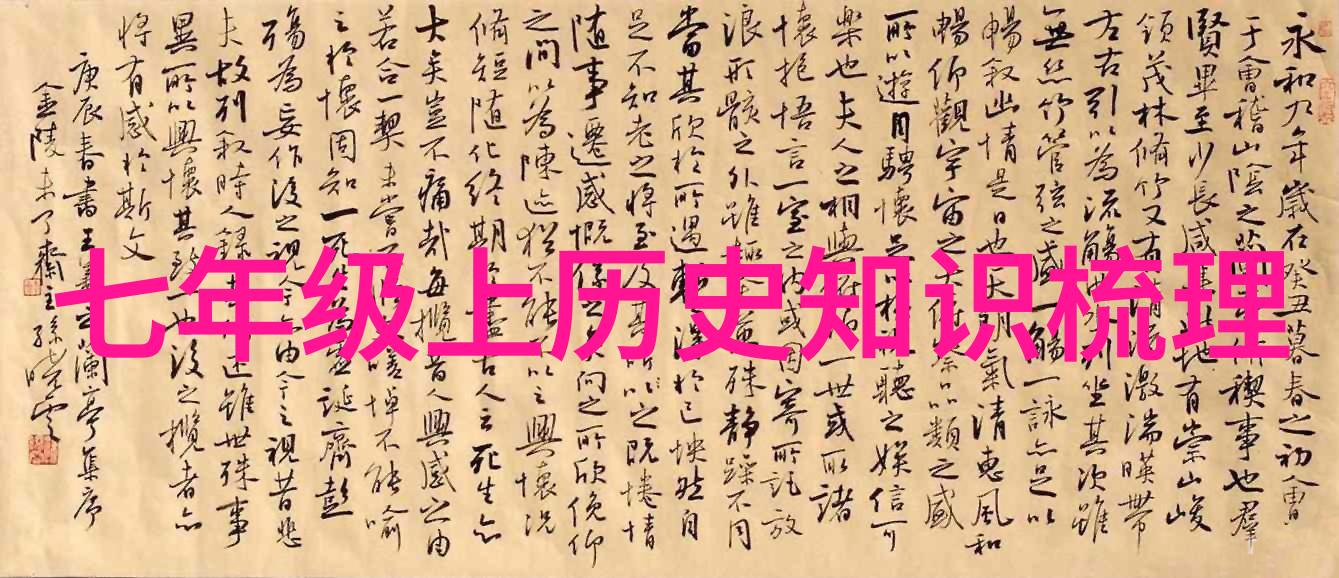 七年级上历史知识梳理
永和九年歲在癸丑暮春之初會
于會稽山陰之禊事也羣
賢畢至少長咸集地有崇山峻
領茂林脩竹又有清激湍暎帶
左右引以為流觴列坐其次雖
無絲竹管弦之盛一觴一詠亦足以
暢叙幽情是日也天朗氣清惠風和
暢仰觀宇宙之大品類之盛
所以遊目騁懷足以極聽之娛信可
樂也夫人之相與一世或取諸
懷抱悟言一室之內或因寄所託放
浪形骸之外雖殊靜躁不同
當其欣於所遇暫得於己怏然自
足不知老之將至及其所之既惓情
隨事遷感慨係之向之所欣俛仰
之間以為陳迹猶不能不以之興懷況
脩短隨化終期於盡古人云死生亦
大矣豈不痛哉每攬昔人興感之由
若合一契未嘗不嗟悼不能喻
之於懷固知一死為誕齊彭
殤為妄作後之視今亦由今之視昔悲
夫故列叙時人錄述雖世殊事
異所以興懷其致一也後之攬者亦
將有感於斯文
庚辰春書王羲之蘭亭集序
金陵未了齋主孫曉雲